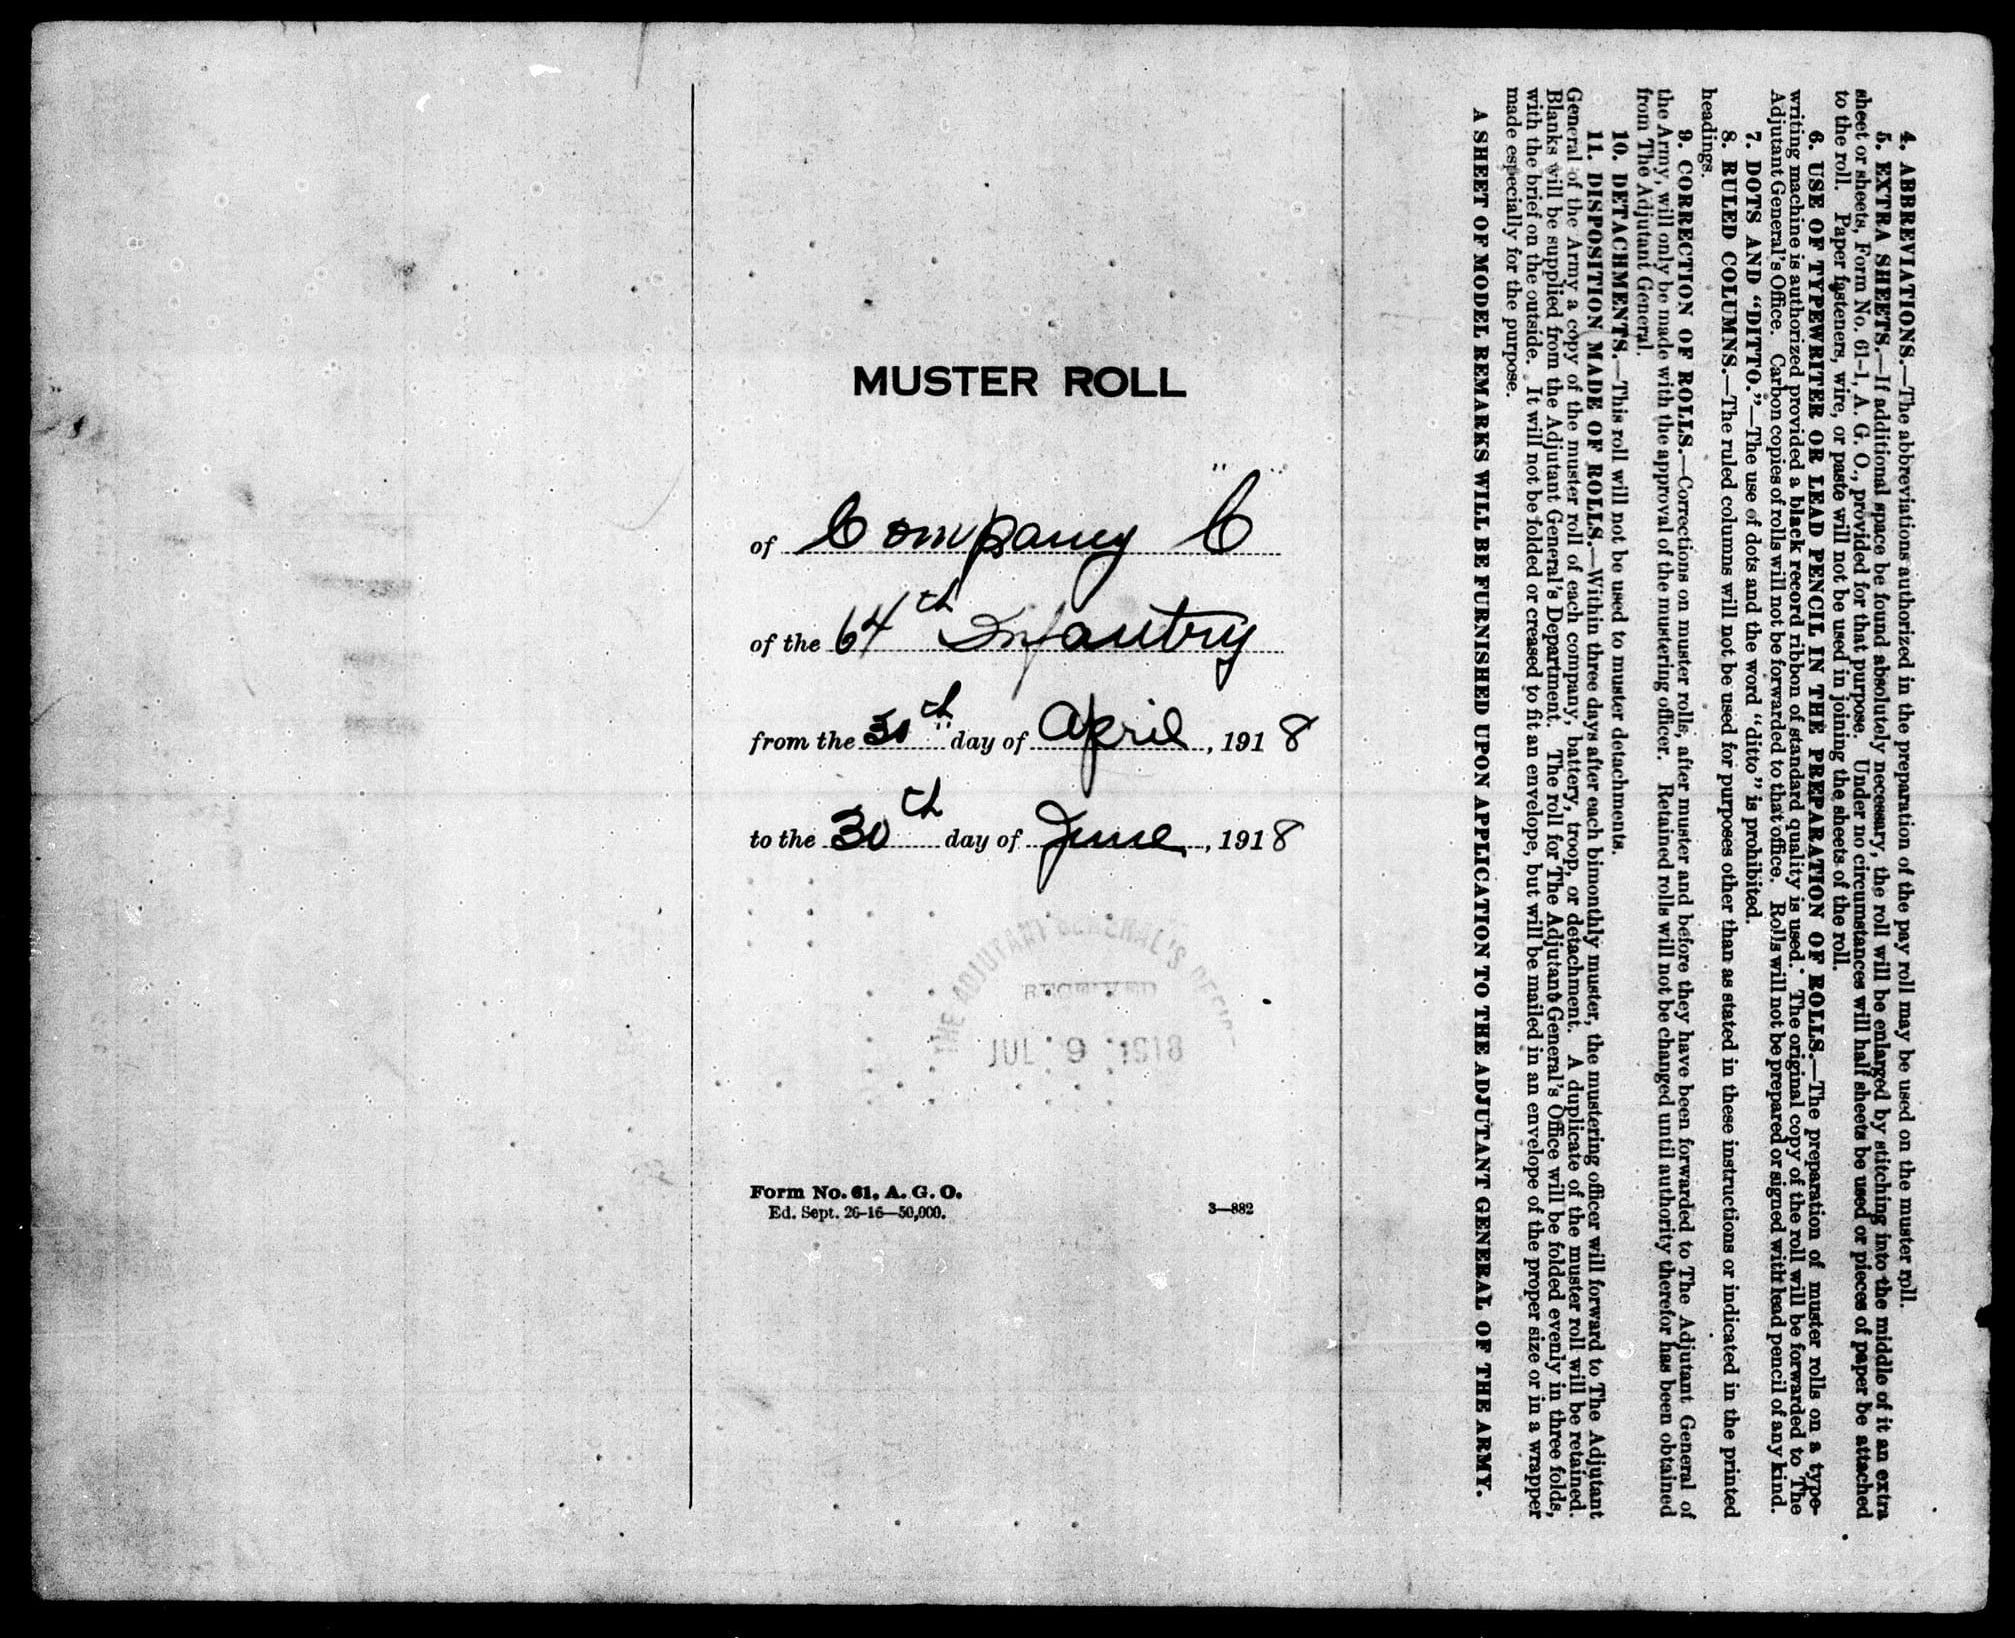 MUSTER ROLL
of Company "C"
of the 64th Infantry
from the 30th day of April, 1918
to the 30th day of June, 1918
THE ADJUTANT GENERAL'S OFFICE
RECEIVED
JUL 9 1918
Form No. 61, A. G. O.
Ed. Sept. 26-16—50,000.
3—882
4. ABBREVIATIONS.—The abbreviations authorized in the preparation of the pay roll may be used on the muster roll.
5. EXTRA SHEETS.—If additional space be found absolutely necessary, the roll will be enlarged by stitching into the middle of it an extra
sheet or sheets, Form No. 61-1, A. G. O., provided for that purpose. Under no circumstances will half sheets be used or pieces of paper be attached
to the roll. Paper fasteners, wire, or paste will not be used in joining the sheets of the roll.
6. USE OF TYPEWRITER OR LEAD PENCIL IN THE PREPARATION OF ROLLS.—The preparation of muster rolls on a type-
writing machine is authorized provided a black record ribbon of standard quality is used. The original copy of the roll will be forwarded to The
Adjutant General's Office. Carbon copies of rolls will not be forwarded to that office. Rolls will not be prepared or signed with lead pencil of any kind.
7. DOTS AND "DITTO."—The use of dots and the word "ditto" is prohibited.
8. RULED COLUMNS.—The ruled columns will not be used for purposes other than as stated in these instructions or indicated in the printed
headings.
9. CORRECTION OF ROLLS.—Corrections on muster rolls, after muster and before they have been forwarded to The Adjutant General of
the Army, will only be made with the approval of the mustering officer. Retained rolls will not be changed until authority therefor has been obtained
from The Adjutant General.
10. DETACHMENTS.—This roll will not be used to muster detachments.
11. DISPOSITION MADE OF ROLLS.—Within three days after each bimonthly muster, the mustering officer will forward to The Adjutant
General of the Army a copy of the muster roll of each company, battery, troop, or detachment. A duplicate of the muster roll will be retained.
Blanks will be supplied from the Adjutant General's Department. The roll for The Adjutant General's Office will be folded evenly in three folds,
with the brief on the outside. It will not be folded or creased to fit an envelope, but will be mailed in an envelope of the proper size or in a wrapper
made especially for the purpose.
A SHEET OF MODEL REMARKS WILL BE FURNISHED UPON APPLICATION TO THE ADJUTANT GENERAL OF THE ARMY.